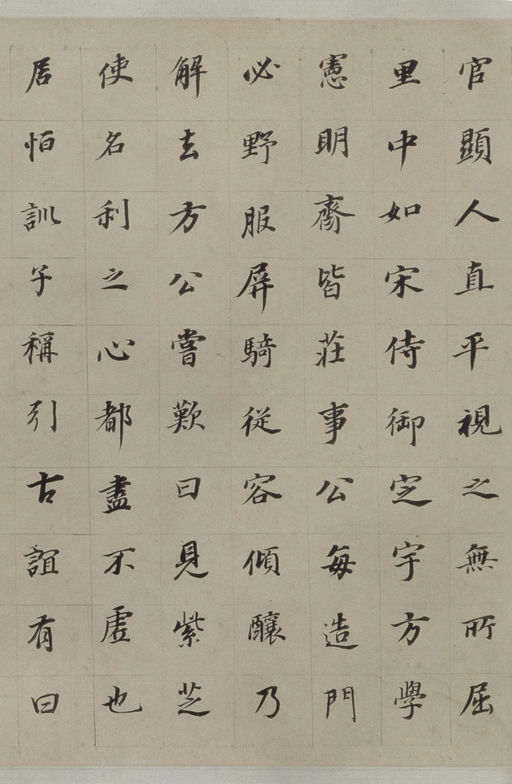 官顯人直平視之無所屈
里中如宋侍御定宇方學
憲明齋皆莊事公每造門
必野服屏騎從容傾釀乃
解去方公嘗歎曰見紫芝
使名利之心都盡不虛也
居怕訓子稱引古誼有曰